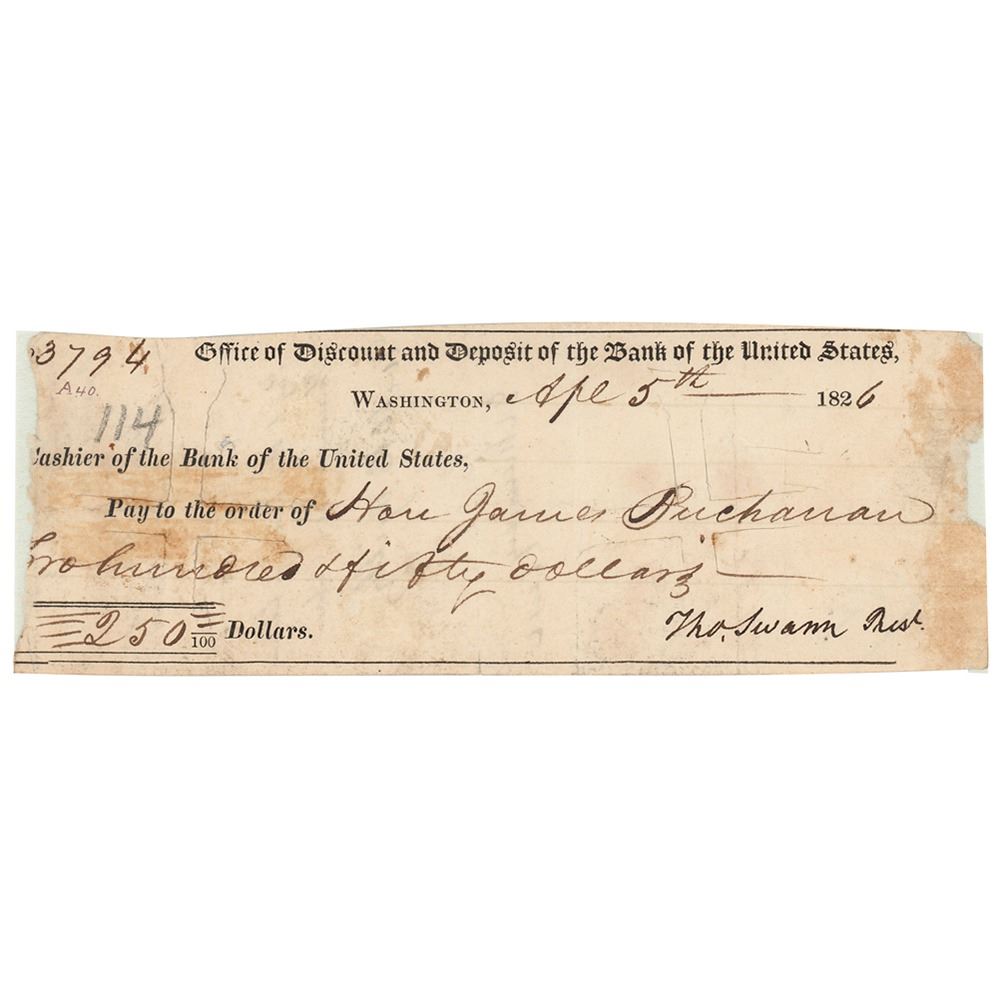 3794 Office of Discount and Deposit of the Bank of the United States,
A40.
Washington, Apl 5th 1826
114
Cashier of the Bank of the United States,
Pay to the order of Hon James Buchanan
Two hundred & fifty dollars
250 =/100 Dollars. Tho. Swann Prest.